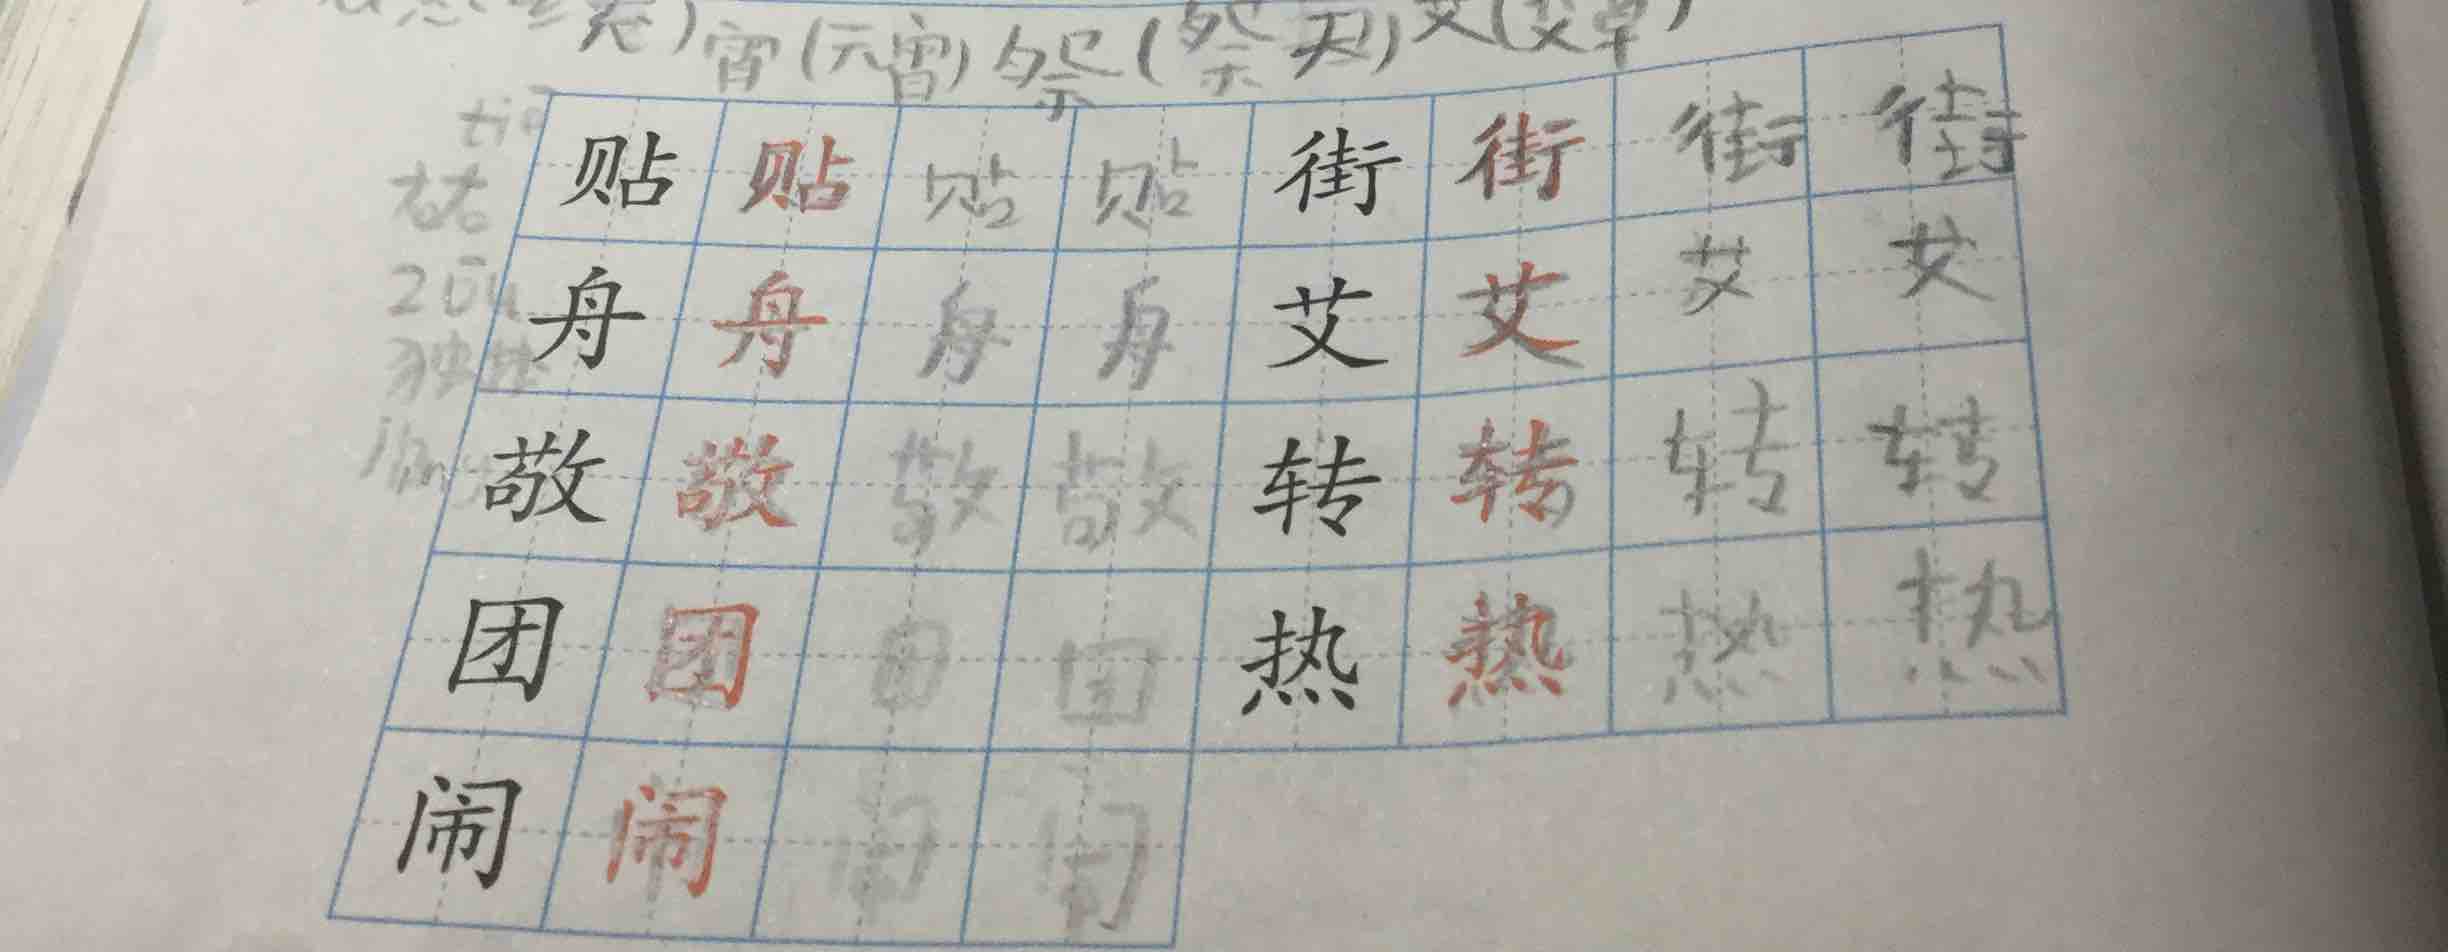 卷)宵(元宵)祭(祭天)艾(艾草)
贴 贴 贴 贴 街 街 街 街
舟 舟 舟 舟 艾 艾 艾 艾
敬 敬 敬 敬 转 转 转 转
团 团 团 团 热 热 热 热
闹 闹 闹 闹